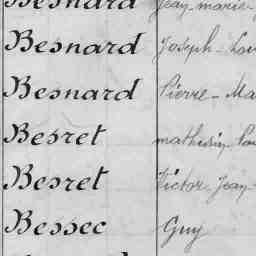 Besnard Jean-marie-
Besnard Joseph-Lou
Besnard Pierre-Ma
Besret mathurin Lou
Besret Victor Jean-
Bessec Guy